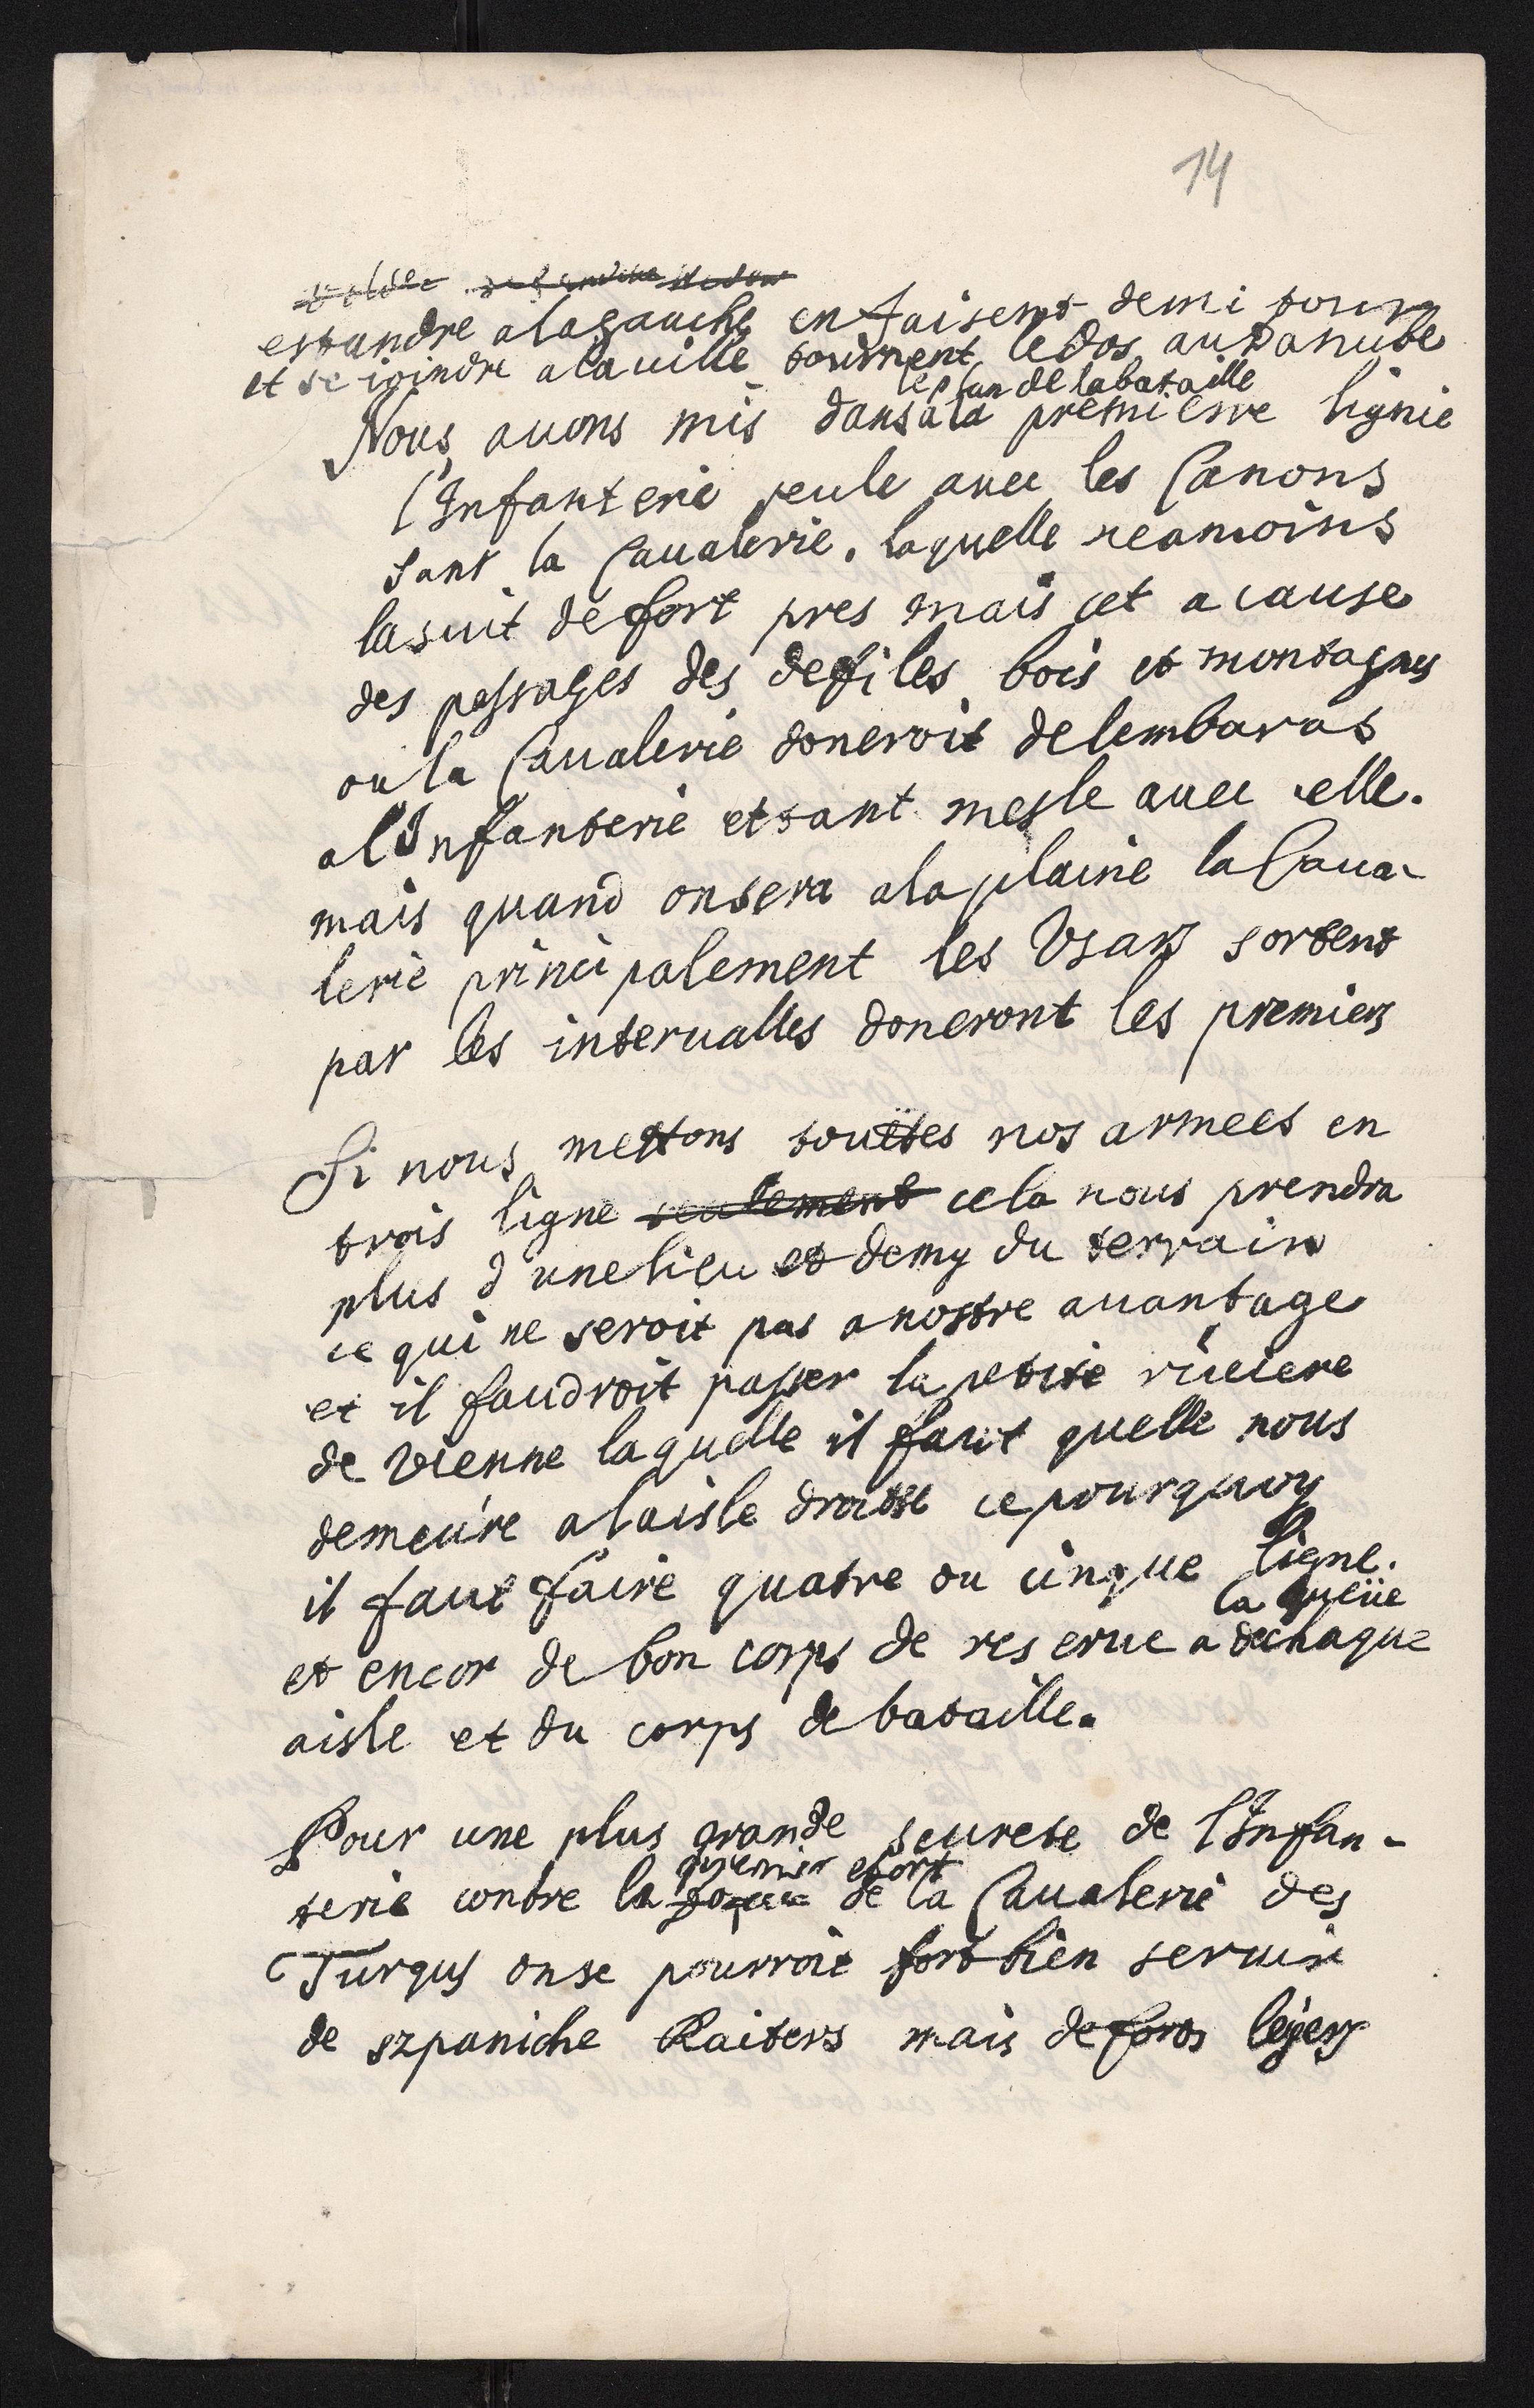 14
estandre alagauche enfaisent demi tourn
et se ioindre alauille tournent ledos auDanube
le plan de labataille
Nous auons mis dans a la premiere lignie
l'Infanterie seule auec les Canons
sans la Caualerie, laquelle neamoins
lasuit de fort pres mais cet a cause
des passages des defiles bois et montagnes
ou la Caualerie doneroit delembaras
al'Infanterie ettant mesle auec elle.
mais quand onsera alaplaine la Caua-
lerie principalement les Vsars sortent
par les interualles doneront les premiers
Si nous mettons touttes nos armees en
trois ligne seulement cela nous prendra
plus d'une lieu et demy du terrain
ce qui ne seroit pas a nostre auantage
et il faudroit passer la petite riuiere
de Vienne laquelle il faut quelle nous
demeure alaisle droitte cepourquoy
il faut faire quatre ou cinque ligne.
la queüe
et encor de bon corps de reserue a dechaque
aisle et du corps debataille.
Pour une plus grande seurete de l'Infan-
premier efort
terie contre la de la Caualerie des
Turqus onse pourroit fort bien seruir
de szpaniche Raiters mais de fort legers